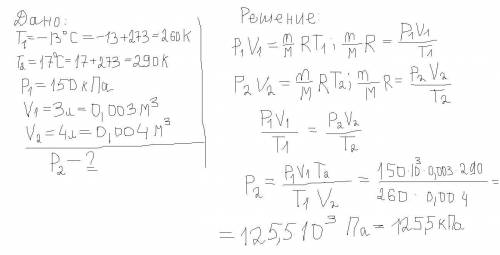 Дано:
T₁=-13°C=-13+273=260K
T₂=17°C=17+273=290K
P₁=150кПа
V₁=3л=0,003м³
V₂=4л=0,004м³
P₂-?
Решение:
P₁V₁=m/M RT₁; m/M R=P₁V₁/T₁
P₂V₂=m/M RT₂; m/M R=P₂V₂/T₂
P₁V₁/T₁=P₂V₂/T₂
P₂=P₁V₁T₂/T₁V₂=150·10³·0,003·290/260·0,004=
=125,510³ Па=125,5кПа